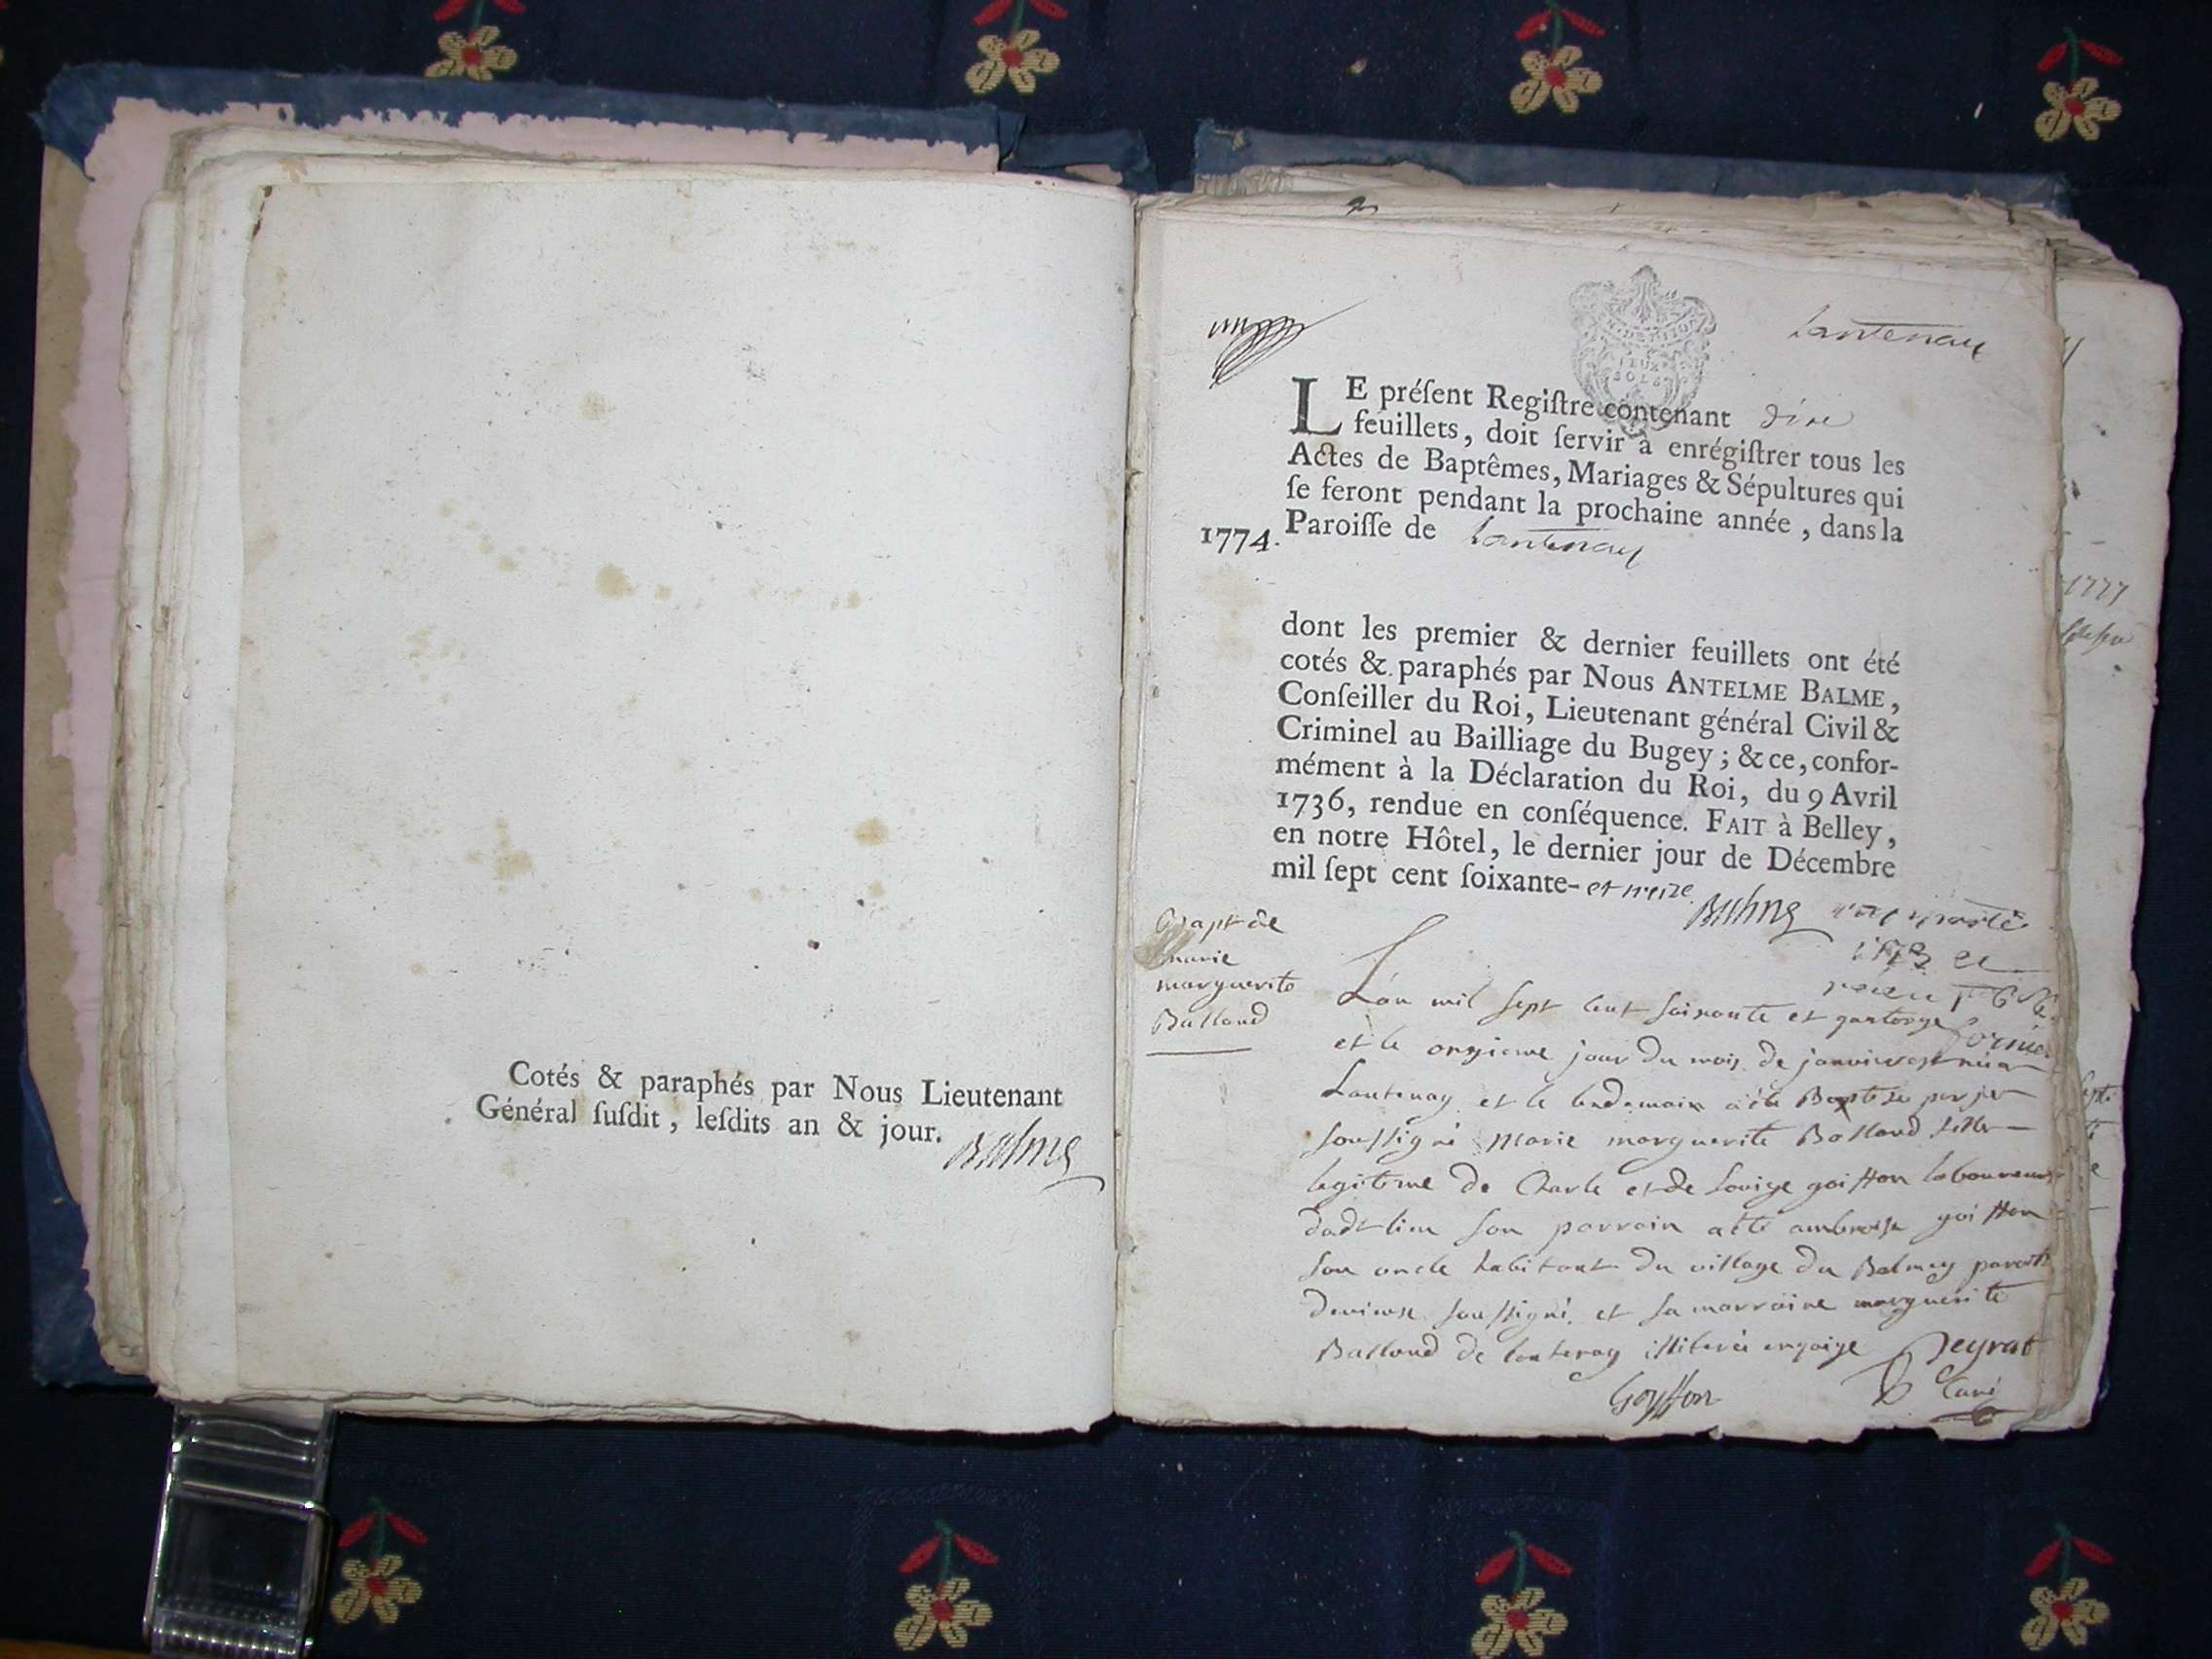 Cotés & paraphés par Nous Lieutenant
Général ſuſdit, leſdits an & jour.
Balme
Lantenay
LE préſent Regiſtre contenant dix
feuillets, doit ſervir à enrégiſtrer tous les
Actes de Baptêmes, Mariages & Sépultures qui
ſe feront pendant la prochaine année, dans la
1774. Paroiſſe de Lantenay
dont les premier & dernier feuillets ont été
cotés & paraphés par Nous ANTELME BALME,
Conſeiller du Roi, Lieutenant général Civil &
Criminel au Bailliage du Bugey; & ce, confor-
mément à la Déclaration du Roi, du 9 Avril
1736, rendue en conſéquence. FAIT à Belley,
en notre Hôtel, le dernier jour de Décembre
mil ſept cent ſoixante- et treize.
Balme
Bapt de
marie
marguerite
Balland
L'an mil sept cent soixante et quatorze
et le onzieme jour du mois de janvier est née a
Lantenay et le lendemain a été Baptisée par je
soussigné Marie marguerite Balland fille
legitime de Charle et de Louise goiffon laboureurs
dudt lieu son parrain a eté ambroise goiffon
son oncle habitant du village du Balmey paroisse
de vieux soussigné et sa marraine marguerite
Balland de lantenay illiterée enquise Peyrat
Goyffon Curé
1777